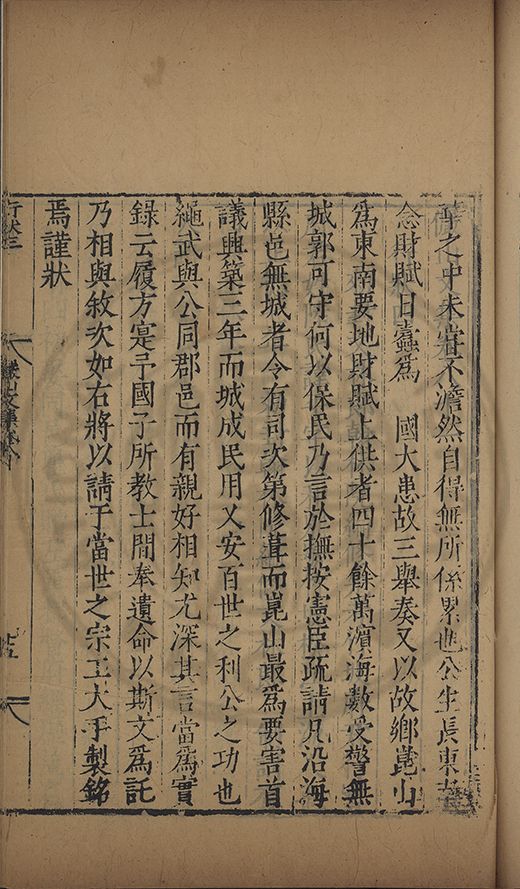 華之中未嘗不澹然自得無所係累也公生長東南
念財賦日蠹為　國大患故三舉奏又以故鄉崑山
為東南要地財賦上供者四十餘萬濱海數受警無
城郭可守何以保民乃言於撫按憲臣疏請凡沿海
縣邑無城者令有司次第修葺而崑山最為要害首
議興築三年而城成民用又安百世之利公之功也
繩武與公同郡邑而有親好相知尤深其言當為實
錄云履方寔予國子所教士間奉遺命以斯文為託
乃相與敘次如右將以請于當世之宗工大手製銘
焉謹狀
行狀三